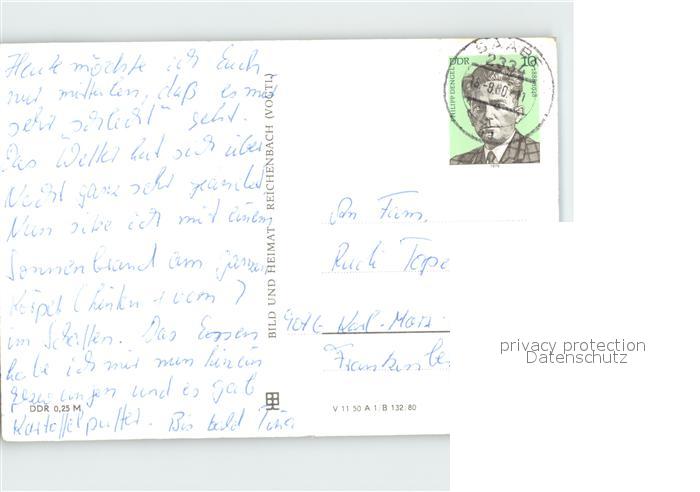 Heute möchte ich Euch
nur mitteilen, daß es mir
sehr schlecht geht.
Das Wetter hat sich über
Nacht ganz sehr gewandelt
Nun sitze ich mit einem
Sonnenbrand am ganzen
Körper (hinten + vorn)
im Schatten. Das Essen
habe ich mir nun hinein
gezwungen und es gab
Kartoffelpuffer. Bis bald
DDR 0,25 M
BILD UND HEIMAT REICHENBACH (VOGTL)
V 11 50 A 1/B 132/80
DDR 10
PHILIPP DENGEL
SAAB
2332
An Fam.
Rudi
Karl-Marx-
privacy protection
Datenschutz